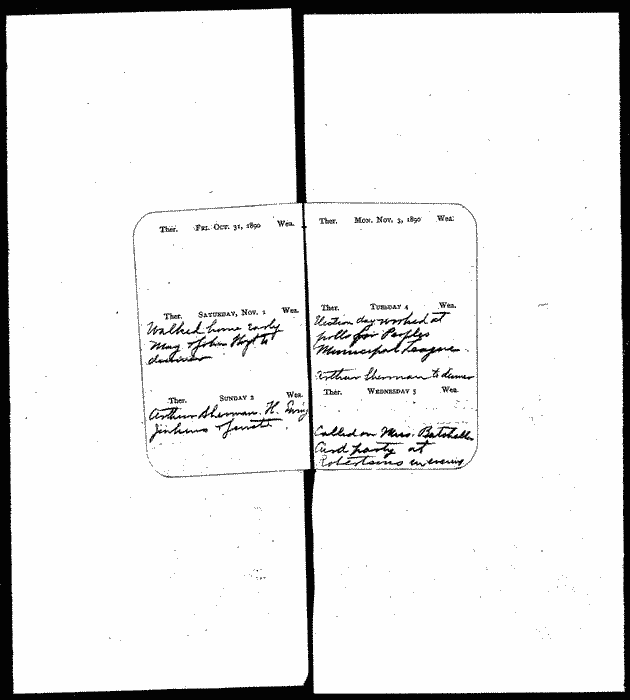 Ther. FRI. OCT. 31, 1890 Wea.
Ther. SATURDAY, NOV. 1 Wea.
Walked home early
May & John Hoyt to
dinner
Ther. SUNDAY 2 Wea.
Arthur Sherman. H.
Jenkins &
Ther. MON. NOV. 3, 1890 Wea.
Ther. TUESDAY 4 Wea.
Election day worked at
polls for Peoples
Municipal League.
Arthur Sherman to dinner
Ther. WEDNESDAY 5 Wea.
Called on Mrs. Batcheller
Card party at
Robertsons in evening